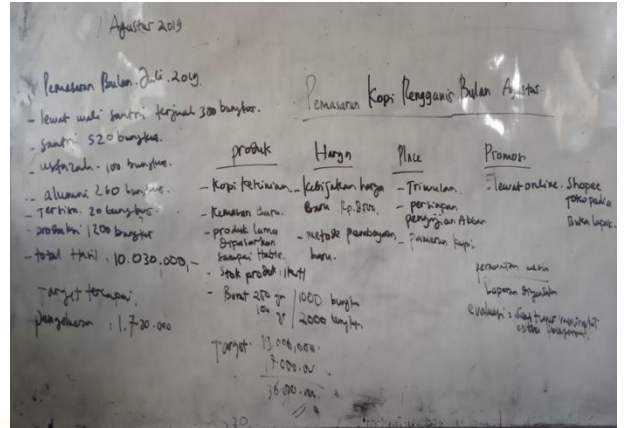 1 Agustus 2019
Pemasaran Bulan Juli 2019.
- lewat wali santri terjual 300 bungkus.
- santri 520 bungkus.
- ustazah 100 bungkus.
- alumni 260 bungkus.
- 20 bungkus
- produksi 1200 bungkus
- total Hasil : 10.030.000,-
Target tercapai.
: 1.720.000
Pemasaran Kopi Rengganis Bulan Agustus.
produk
- Kopi kekinian
- Kemasan Baru.
- produk lama
Dipasarkan
sampai Habis.
- Stok produk :
- Berat 250 gr / 1000 bungkus
100 gr / 2000 bungkus
Target. 19.000.000.
17.000.000
36.000.000
Harga
- kebijakan harga
Baru Rp. 8000.
- metode pembayaran
baru.
Place
- Triwulan.
- persiapan
pengajian Akbar
- Pameran kopi
Promosi
- lewat online. Shopee
tokopedia
Buka lapak.
Laporan
evaluasi :